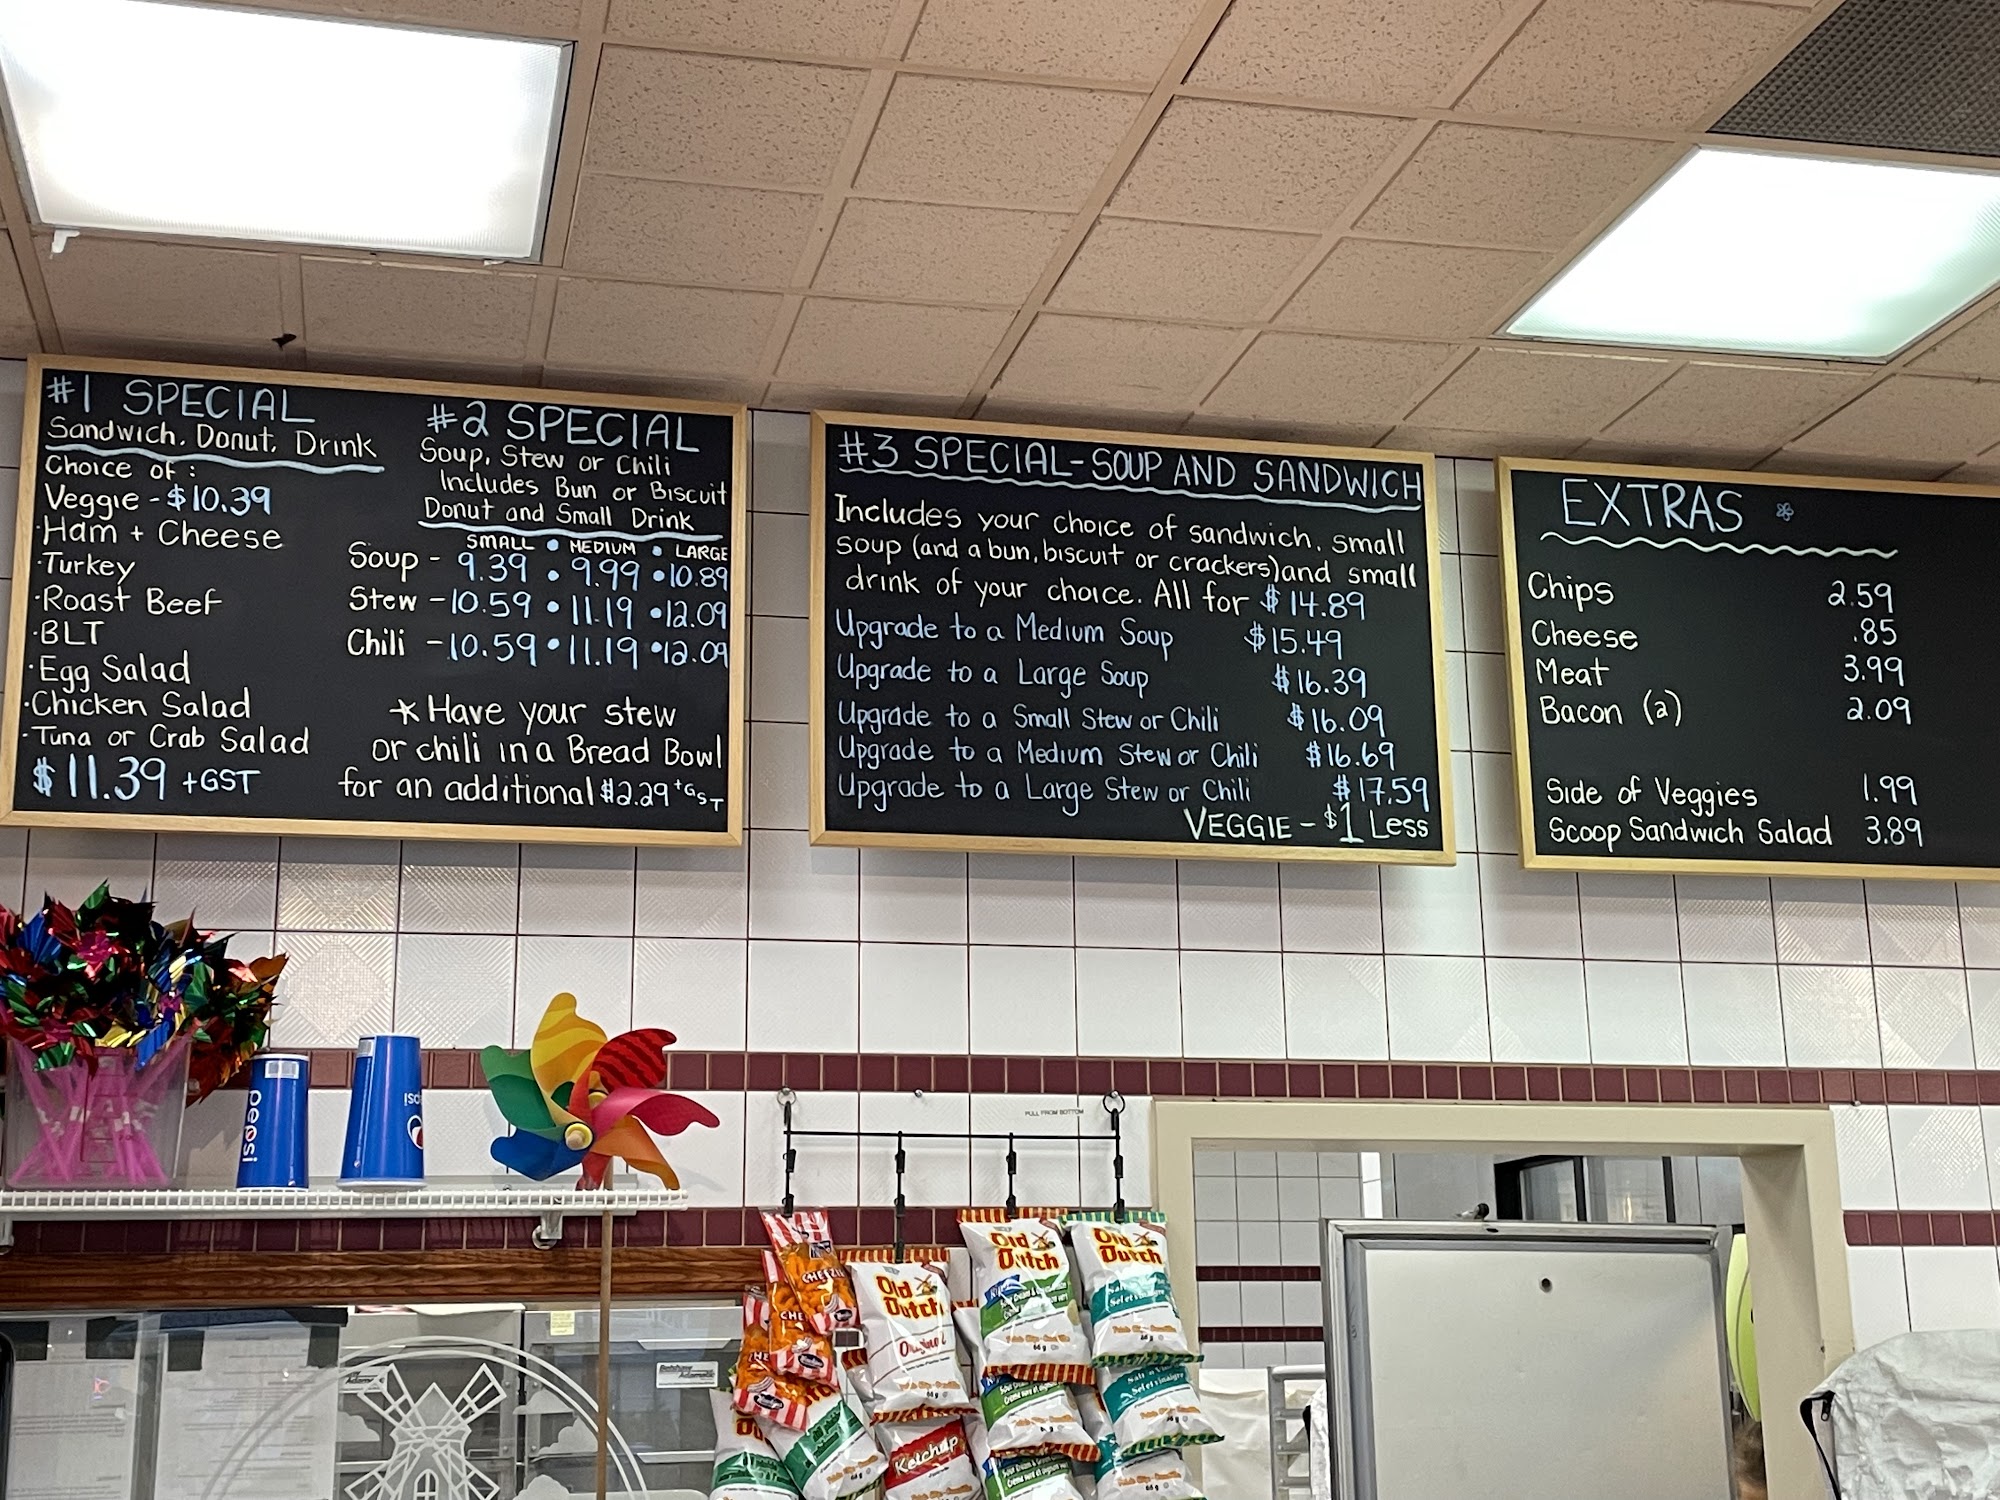 #1 SPECIAL
Sandwich, Donut, Drink
Choice of:
Veggie - $10.39
·Ham + Cheese
·Turkey
·Roast Beef
·BLT
·Egg Salad
·Chicken Salad
·Tuna or Crab Salad
$11.39 +GST
#2 SPECIAL
Soup, Stew or Chili
Includes Bun or Biscuit
Donut and Small Drink
SMALL • MEDIUM • LARGE
Soup - 9.39 • 9.99 • 10.89
Stew - 10.59 • 11.19 • 12.09
Chili - 10.59 • 11.19 • 12.09
*Have your stew
or chili in a Bread Bowl
for an additional $2.29 +GST
#3 SPECIAL-SOUP AND SANDWICH
Includes your choice of sandwich, small
soup (and a bun, biscuit or crackers) and small
drink of your choice. All for $14.89
Upgrade to a Medium Soup $15.49
Upgrade to a Large Soup $16.39
Upgrade to a Small Stew or Chili $16.09
Upgrade to a Medium Stew or Chili $16.69
Upgrade to a Large Stew or Chili $17.59
VEGGIE - $1 Less
EXTRAS
Chips 2.59
Cheese .85
Meat 3.99
Bacon (2) 2.09
Side of Veggies 1.99
Scoop Sandwich Salad 3.89
pepsi
pepsi
PULL FROM BOTTOM
Old Dutch
Original
Old Dutch
66 g
Old Dutch
66 g
Ketchup